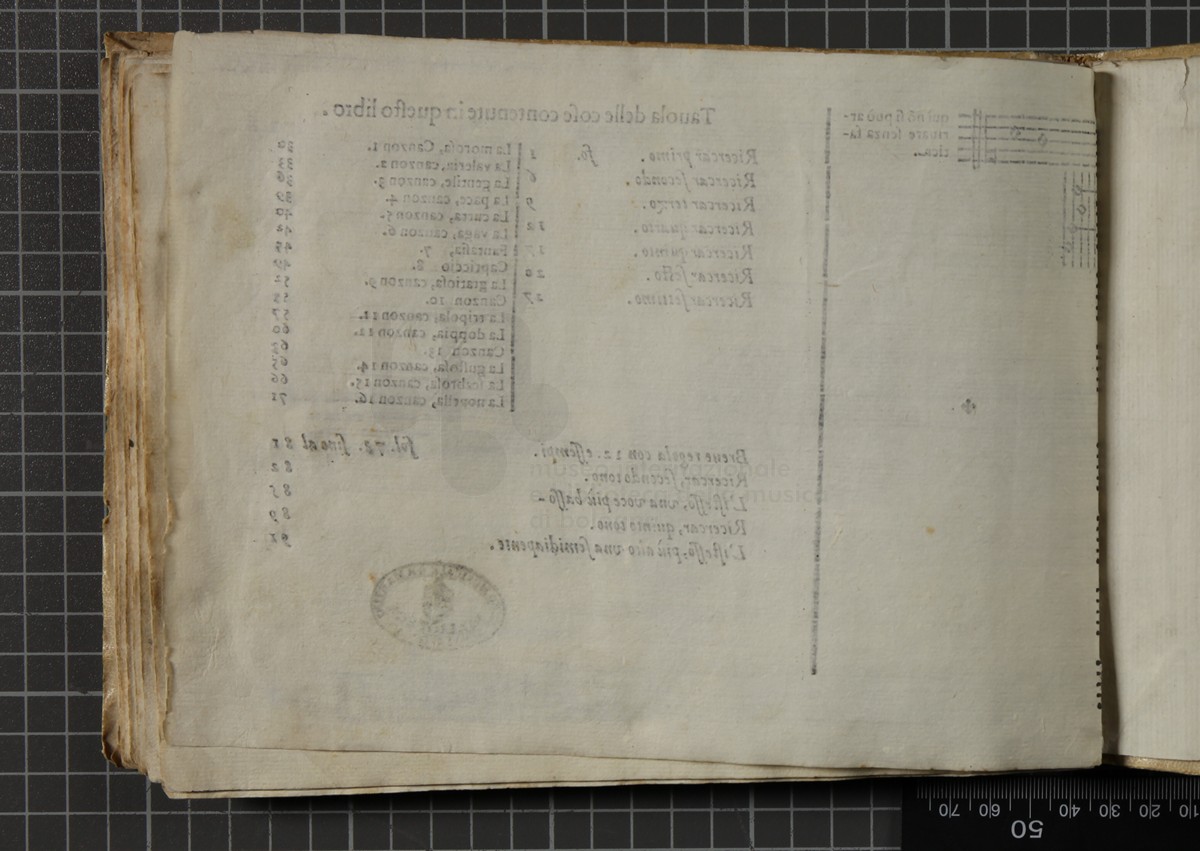 Tauola delle cose contenute in questo libro.
Ricercar primo. fo. 1
Ricercar secondo. 6
Ricercar terzo. 9
Ricercar quarto. 12
Ricercar quinto. 17
Ricercar sesto. 20
Ricercar settimo. 27
La morosa, Canzon 1. 30
La valeria, canzon 2. 33
La gentile, canzon 3. 36
La pace, canzon 4. 39
La curta, canzon 5. 40
La vaga, canzon 6. 42
Fantasia, 7. 45
Capriccio 8. 49
La gratiosa, canzon 9. 52
Canzon 10. 55
La tripola, canzon 11. 57
La doppia, canzon 12. 60
Canzon 13. 62
La gustosa, canzon 14. 65
La scabrosa, canzon 15. 66
La nouella, canzon 16. 71
Breue regola con 12. essempi. fol. 72. sino al 81
Ricercar, secondo tono. 82
L'istesso, vna voce più basso- 85
Ricercar, quinto tono. 89
L'istesso, più alto vna semidiapente. 91
qui nõ si può ar-
riuare senza fa-
tica.
museo internazionale
musica
di bolo
70 60 50 40 30 20 10